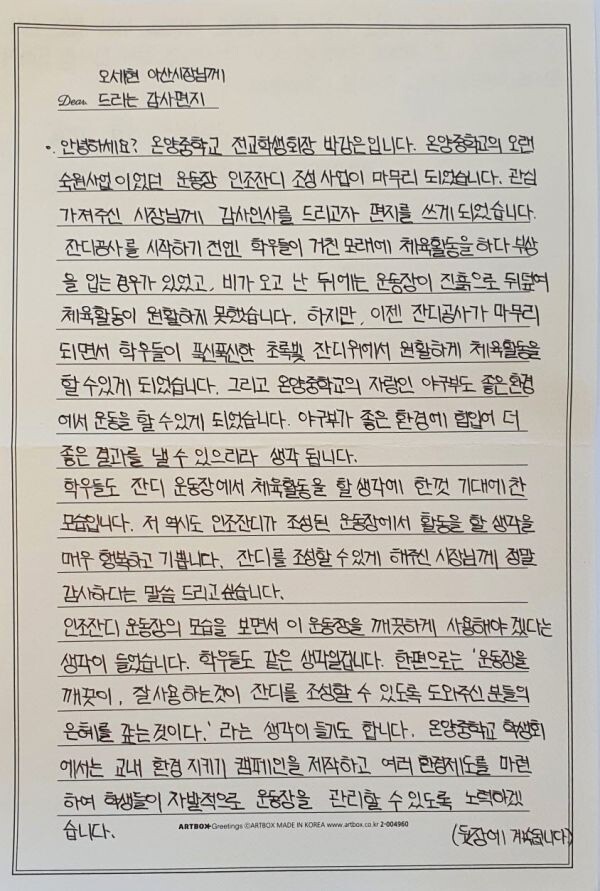 오세현 아산시장님께
Dear. 드리는 감사편지
안녕하세요? 온양중학교 전교학생회장 박강은입니다. 온양중학교의 오랜
숙원사업이었던 운동장 인조잔디 조성사업이 마무리 되었습니다. 관심
가져주신 시장님께 감사인사를 드리고자 편지를 쓰게 되었습니다.
잔디공사를 시작하기 전엔 학우들이 거친 모래에 체육활동을 하다 부상
을 입는 경우가 있었고, 비가 오고 난 뒤에는 운동장이 진흙으로 뒤덮여
체육활동이 원활하지 못했습니다. 하지만, 이젠 잔디공사가 마무리
되면서 학우들이 푹신푹신한 초록빛 잔디위에서 원활하게 체육활동을
할 수 있게 되었습니다. 그리고 온양중학교의 자랑인 야구부도 좋은환경
에서 운동을 할 수 있게 되었습니다. 야구부가 좋은 환경에 힘입어 더
좋은 결과를 낼 수 있으리라 생각 됩니다.
학우들도 잔디 운동장에서 체육활동을 할 생각에 한껏 기대에 찬
모습입니다. 저 역시도 인조잔디가 조성된 운동장에서 활동을 할 생각을
매우 행복하고 기쁩니다. 잔디를 조성할 수 있게 해주신 시장님께 정말
감사하다는 말씀 드리고 싶습니다.
인조잔디 운동장의 모습을 보면서 이 운동장을 깨끗하게 사용해야 겠다는
생각이 들었습니다. 학우들도 같은 생각일겁니다. 한편으로는 '운동장을
깨끗이, 잘 사용하는것이 잔디를 조성할 수 있도록 도와주신 분들의
은혜를 갚는것이다.' 라는 생각이 들기도 합니다. 온양중학교 학생회
에서는 교내 환경 지키기 캠페인을 제작하고 여러 환경제도를 마련
하여 학생들이 자발적으로 운동장을 관리할 수 있도록 노력하겠
습니다.
ARTBOX Greetings ⓒARTBOX MADE IN KOREA www.artbox.co.kr 2-004960
(뒷장에 계속됩니다)